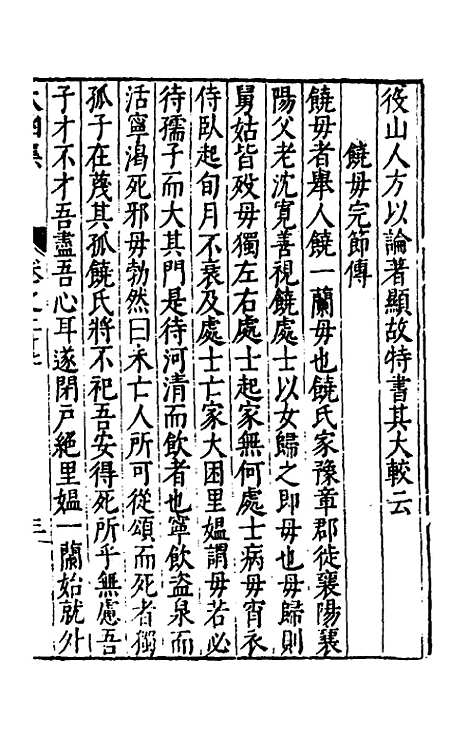 役山人方以論著顯故特書其大較云
饒毋完節傳
饒毋者舉人饒一蘭毋也饒氏家豫章郡徙襄陽襄
陽父老沈寬善視饒處士以女歸之即毋也毋歸則
舅姑皆歿毋獨左右處士起家無何處士病毋宵衣
侍臥起旬月不衰及處士亡家大困里媼謂毋若必
待孺子而大其門是待河清而飲者也寧飲盜泉而
活寧渴死邪毋勃然曰未亡人所可從頌而死者獨
孤子在蔑其孤饒氏將不祀吾安得死所乎無慮吾
子才不才吾盡吾心耳遂閉戸絕里媼一蘭始就外
卷之